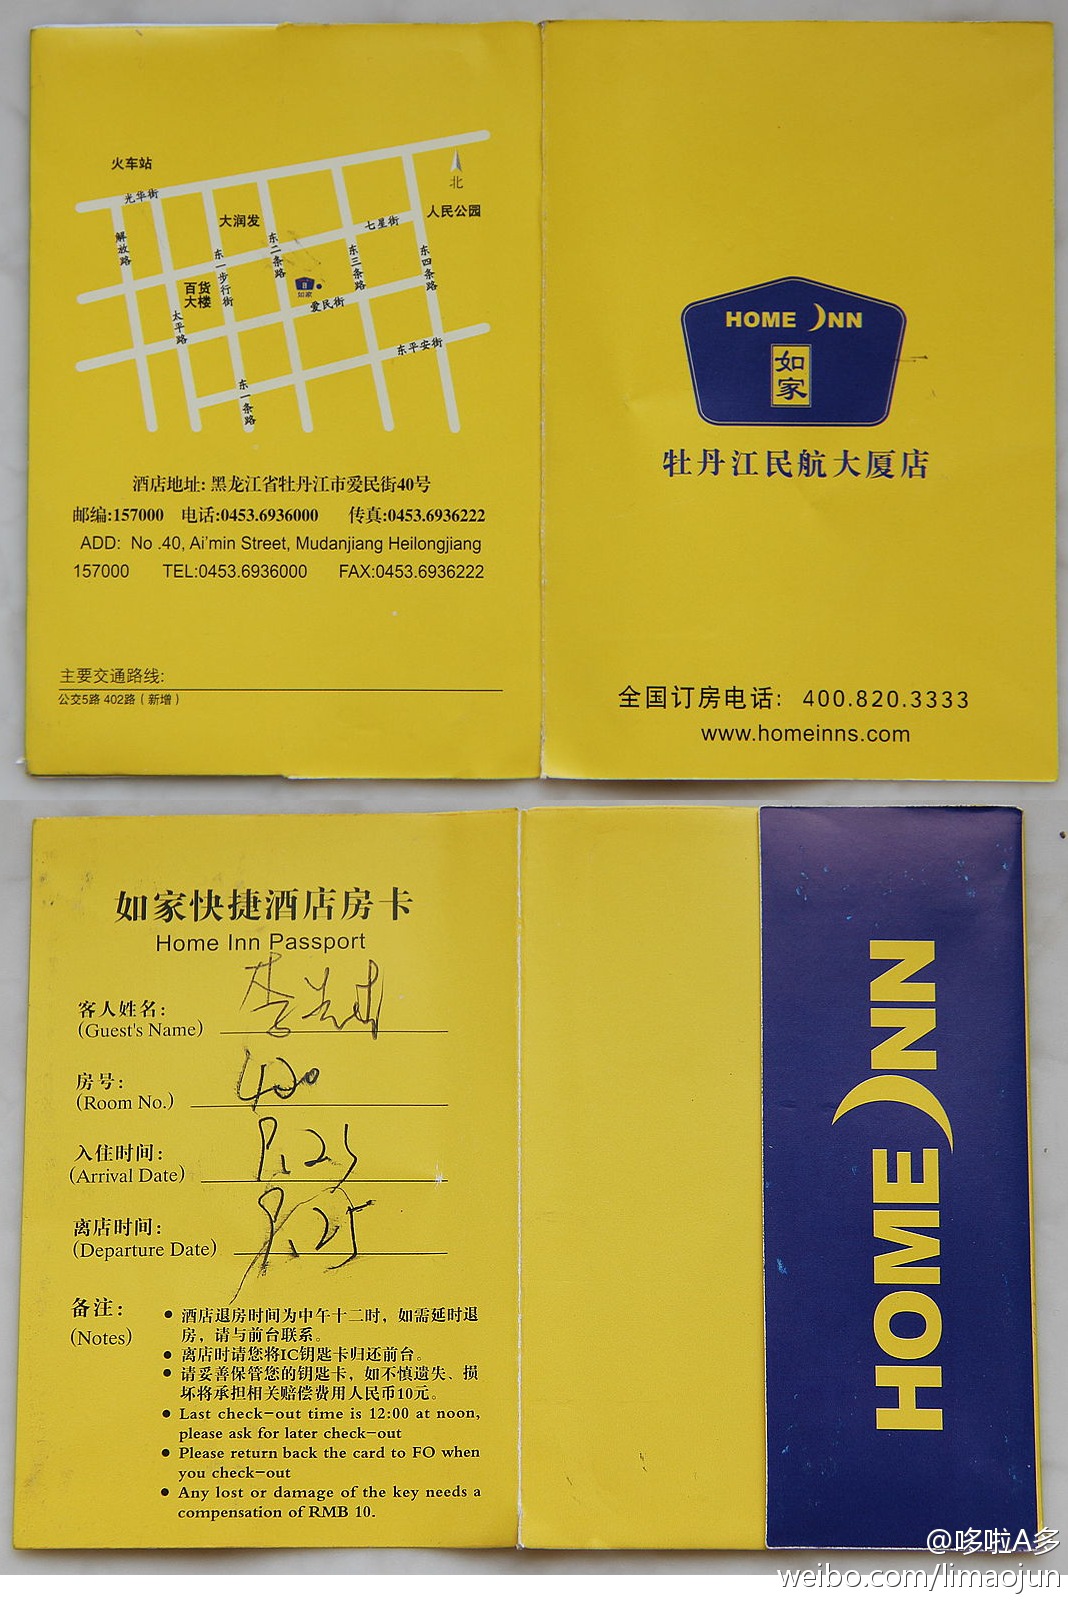 火车站
光华街
北
大润发
七星街
人民公园
解放路
东一步行街
东二条路
东三条路
东四条路
百货
大楼
如家
爱民街
太平路
东平安街
东一条路
酒店地址: 黑龙江省牡丹江市爱民街40号
邮编:157000 电话:0453.6936000 传真:0453.6936222
ADD: No .40, Ai'min Street, Mudanjiang Heilongjiang
157000 TEL:0453.6936000 FAX:0453.6936222
主要交通路线:
公交5路 402路（新增）
HOME INN
如家
牡丹江民航大厦店
全国订房电话: 400.820.3333
www.homeinns.com
如家快捷酒店房卡
Home Inn Passport
客人姓名:
(Guest's Name) 李
房号:
(Room No.) 420
入住时间:
(Arrival Date)
离店时间:
(Departure Date)
备注:
(Notes)
● 酒店退房时间为中午十二时，如需延时退
房，请与前台联系。
● 离店时请您将IC钥匙卡归还前台。
● 请妥善保管您的钥匙卡，如不慎遗失、损
坏将承担相关赔偿费用人民币10元。
● Last check-out time is 12:00 at noon,
please ask for later check-out
● Please return back the card to FO when
you check-out
● Any lost or damage of the key needs a
compensation of RMB 10.
HOME INN
@哆啦A多
weibo.com/limaojun